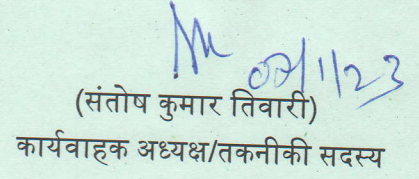 /1/23
(संतोष कुमार तिवारी)
कार्यवाहक अध्यक्ष/तकनीकी सदस्य